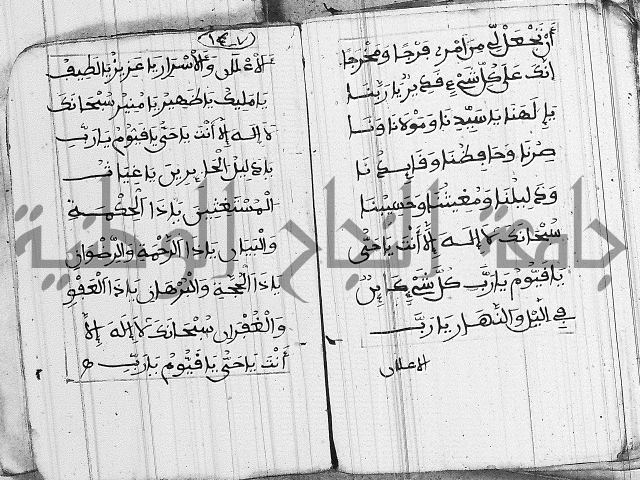 أن تجعل لي من أمري فرجا ومخرجا
انك على كل شيء قدير يا ربنا
يا إلهنا يا سيدنا ومولانا ونا
صرنا وحافظنا وقايدنا
ودليلنا ومغيثنا وحسيبنا
سبحانك لا إله إلا أنت يا حي
يا قيوم يا رب كل شيء كاين
في الليل والنهار يا رب
الاعلان
(١٤٠٧)
الاعلان والأسرار يا عزيز يا لطيف
يا مليك يا ظهير يا منير سبحانك
لا إله إلا أنت يا حي يا قيوم يا رب
يا دليل الحايرين يا غياث
المستغيثين يا ذا الحكمة
والبيان يا ذا الرحمة والرضوان
يا ذا الحجة والبرهان يا ذا العفو
والغفران سبحانك لا إله إلا
أنت يا حي يا قيوم يا رب ه
جامعة النجاح الوطنية